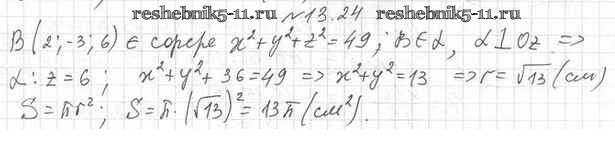 reshebnik5-11.ru №13.24 reshebnik5-11.ru
B(2;-3;6) ∈ сфере x²+y²+z²=49; B∈α, α⊥Oz =>
α: z=6; x²+y²+36=49 => x²+y²=13 => r=√13 (см)
S=πr²; S=π·(√13)²=13π(см²).